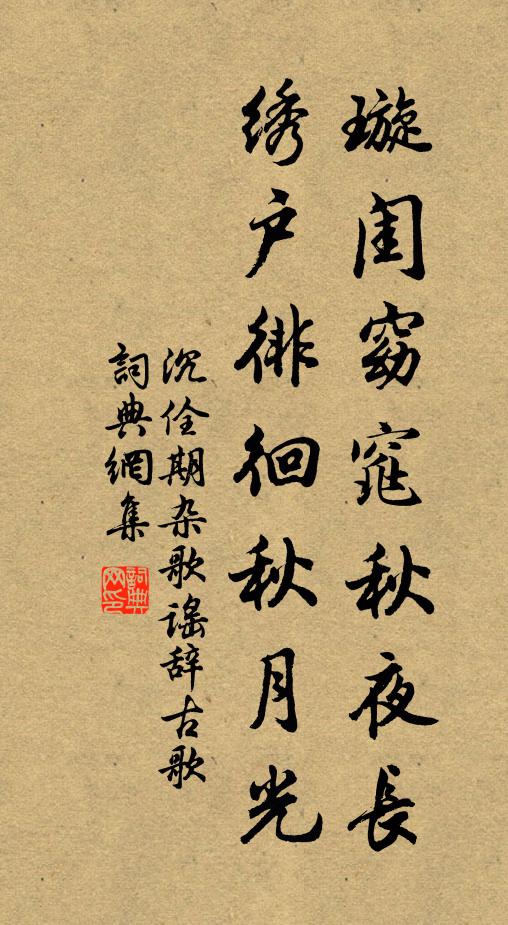 璇闺窈窕秋夜長
绣户徘徊秋月光
沉佺期杂歌谣辞古歌
詞典網集
詞典网印